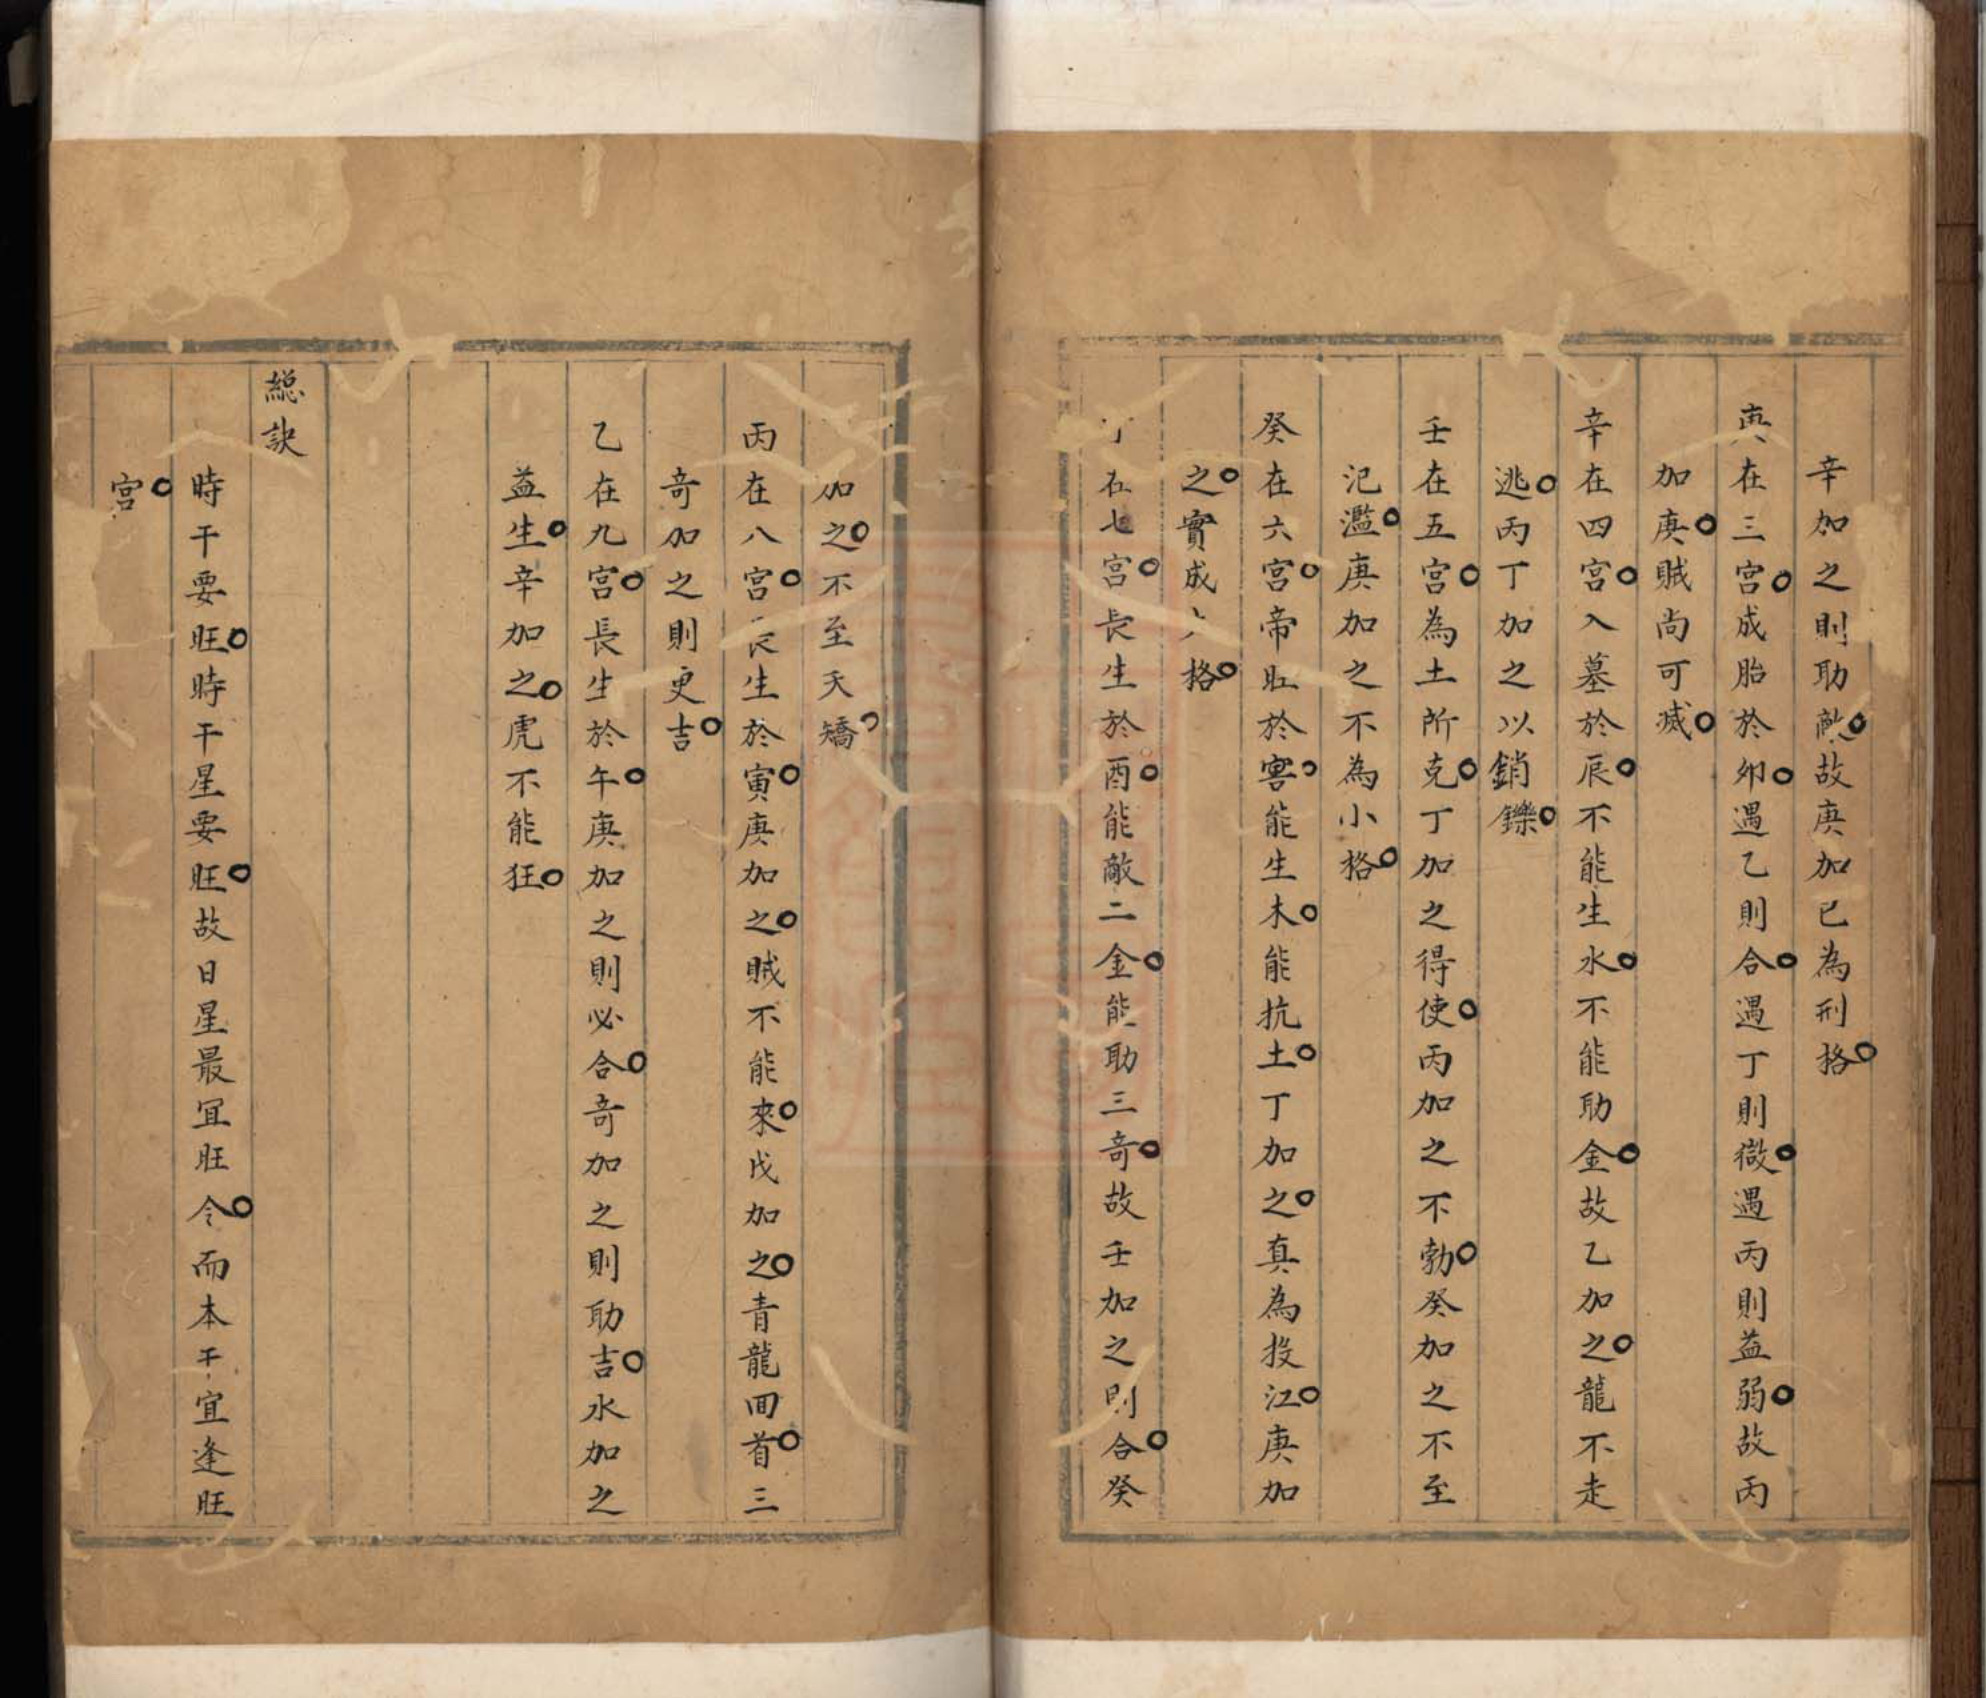 辛加之則助敵故庚加已為刑格
庚在三宮成胎於卯遇乙則合遇丁則微遇丙則益弱故丙
加庚賊尚可滅
辛在四宮入墓於辰不能生水不能助金故乙加之龍不走
逃丙丁加之以銷鑠
壬在五宮為土所克丁加之得使丙加之不勃癸加之不至
汜濫庚加之不為小格
癸在六宮帝旺於害能生木能抗土丁加之真為投江庚加
之實成大格
丁在七宮長生於酉能敵二金能助三奇故壬加之則合癸
加之不至夭矯
丙在八宮長生於寅庚加之賊不能來戊加之青龍回首三
奇加之則更吉
乙在九宮長生於午庚加之則必合奇加之則助吉水加之
益生辛加之虎不能狂
總訣
時干要旺時干星要旺故日星最宜旺令而本干宜逢旺
宮